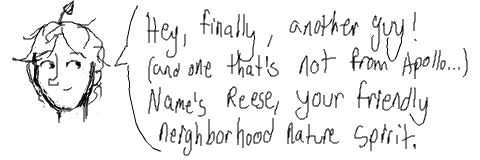 Hey, finally, another guy!
(and one that's not from Apollo...)
Name's Reese, your friendly
neighborhood nature spirit.